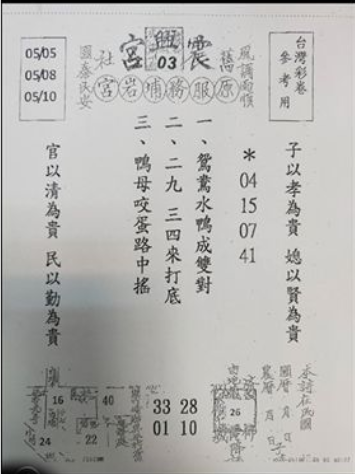 台灣彩卷
參考用
風調雨順
震興宮
03
社
國泰民安
原服務埔岩宮
05/05
05/08
05/10
子以孝為貴 媳以賢為貴
* 04 15 07 41
一、鴛鴦水鴨成雙對
二、二九 三四來打底
三、鴨母咬蛋路中搖
官以清為貴 民以勤為貴
16
40
22
24
33 28
01 10
26
國曆 月 日
農曆 月 日